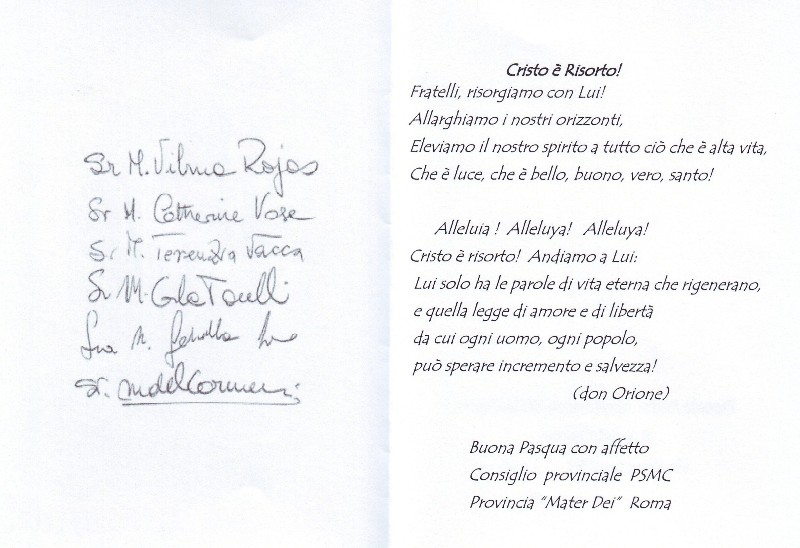 Sr M. Vilma Rojas
Sr M. Catherine Vose
Sr. M. Terenzia Vacca
Sr M. Carla
M.
Sr.
Cristo è Risorto!
Fratelli, risorgiamo con Lui!
Allarghiamo i nostri orizzonti,
Eleviamo il nostro spirito a tutto ciò che è alta vita,
Che è luce, che è bello, buono, vero, santo!
Alleluia ! Alleluya! Alleluya!
Cristo è risorto! Andiamo a Lui:
Lui solo ha le parole di vita eterna che rigenerano,
e quella legge di amore e di libertà
da cui ogni uomo, ogni popolo,
può sperare incremento e salvezza!
(don Orione)
Buona Pasqua con affetto
Consiglio provinciale PSMC
Provincia "Mater Dei" Roma